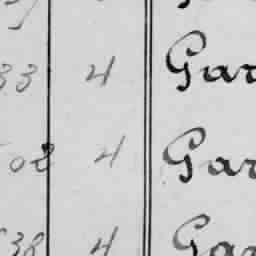 33 4 Gar
02 4 Gar
38 4 Gar